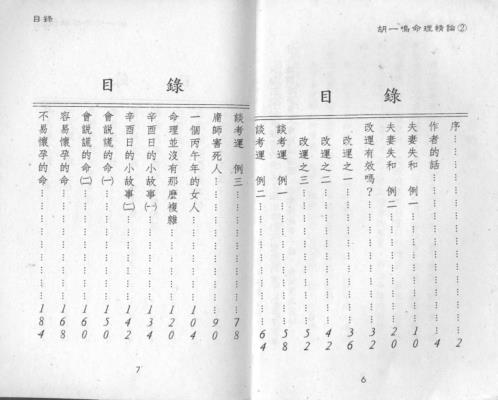 胡一鳴命理精論②
目錄
序……………………2
作者的話……………………4
夫妻失和 例一……………………10
夫妻失和 例二……………………20
改運有效嗎？……………………32
改運之一……………………36
改運之二……………………42
改運之三……………………52
談考運 例一……………………58
談考運 例二……………………64
6
目錄
目錄
談考運 例三……………………78
庸師害死人……………………90
一個丙午年的女人……………………104
命理並沒有那麼複雜……………………120
辛酉日的小故事㈠……………………134
辛酉日的小故事㈡……………………142
會說謊的命㈠……………………150
會說謊的命㈡……………………160
容易懷孕的命……………………168
不易懷孕的命……………………184
7